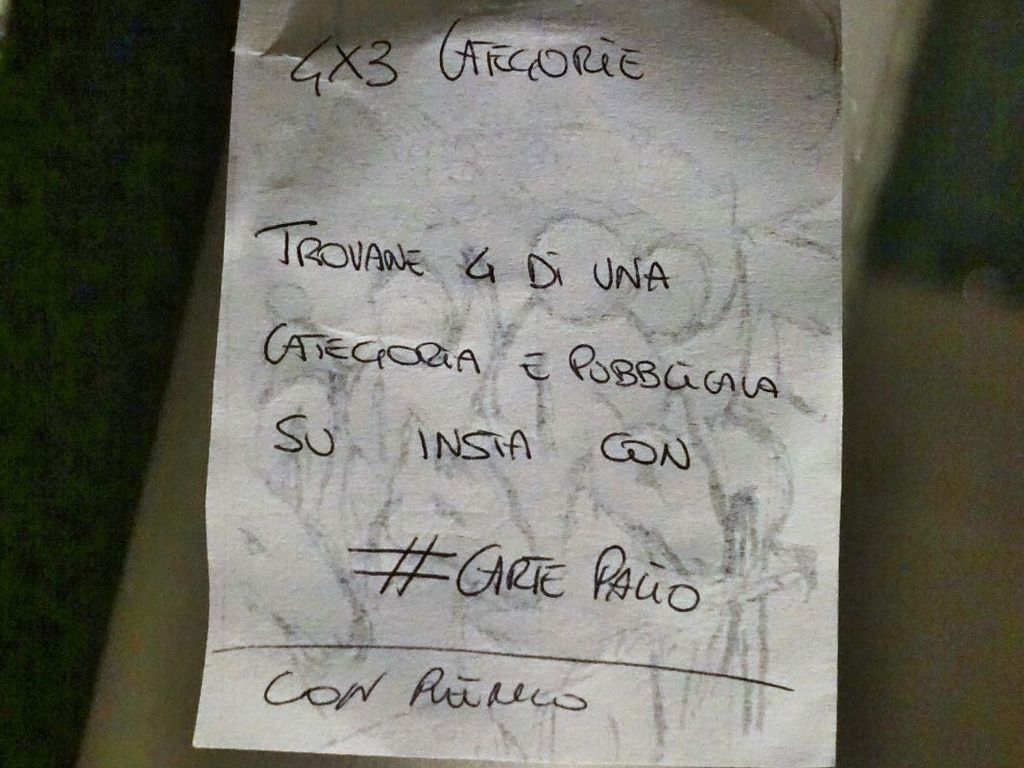 4X3 CATEGORIE
TROVANE 4 DI UNA
CATEGORIA E PUBBLICALA
SU INSTA CON
#CARTE PALIO
CON